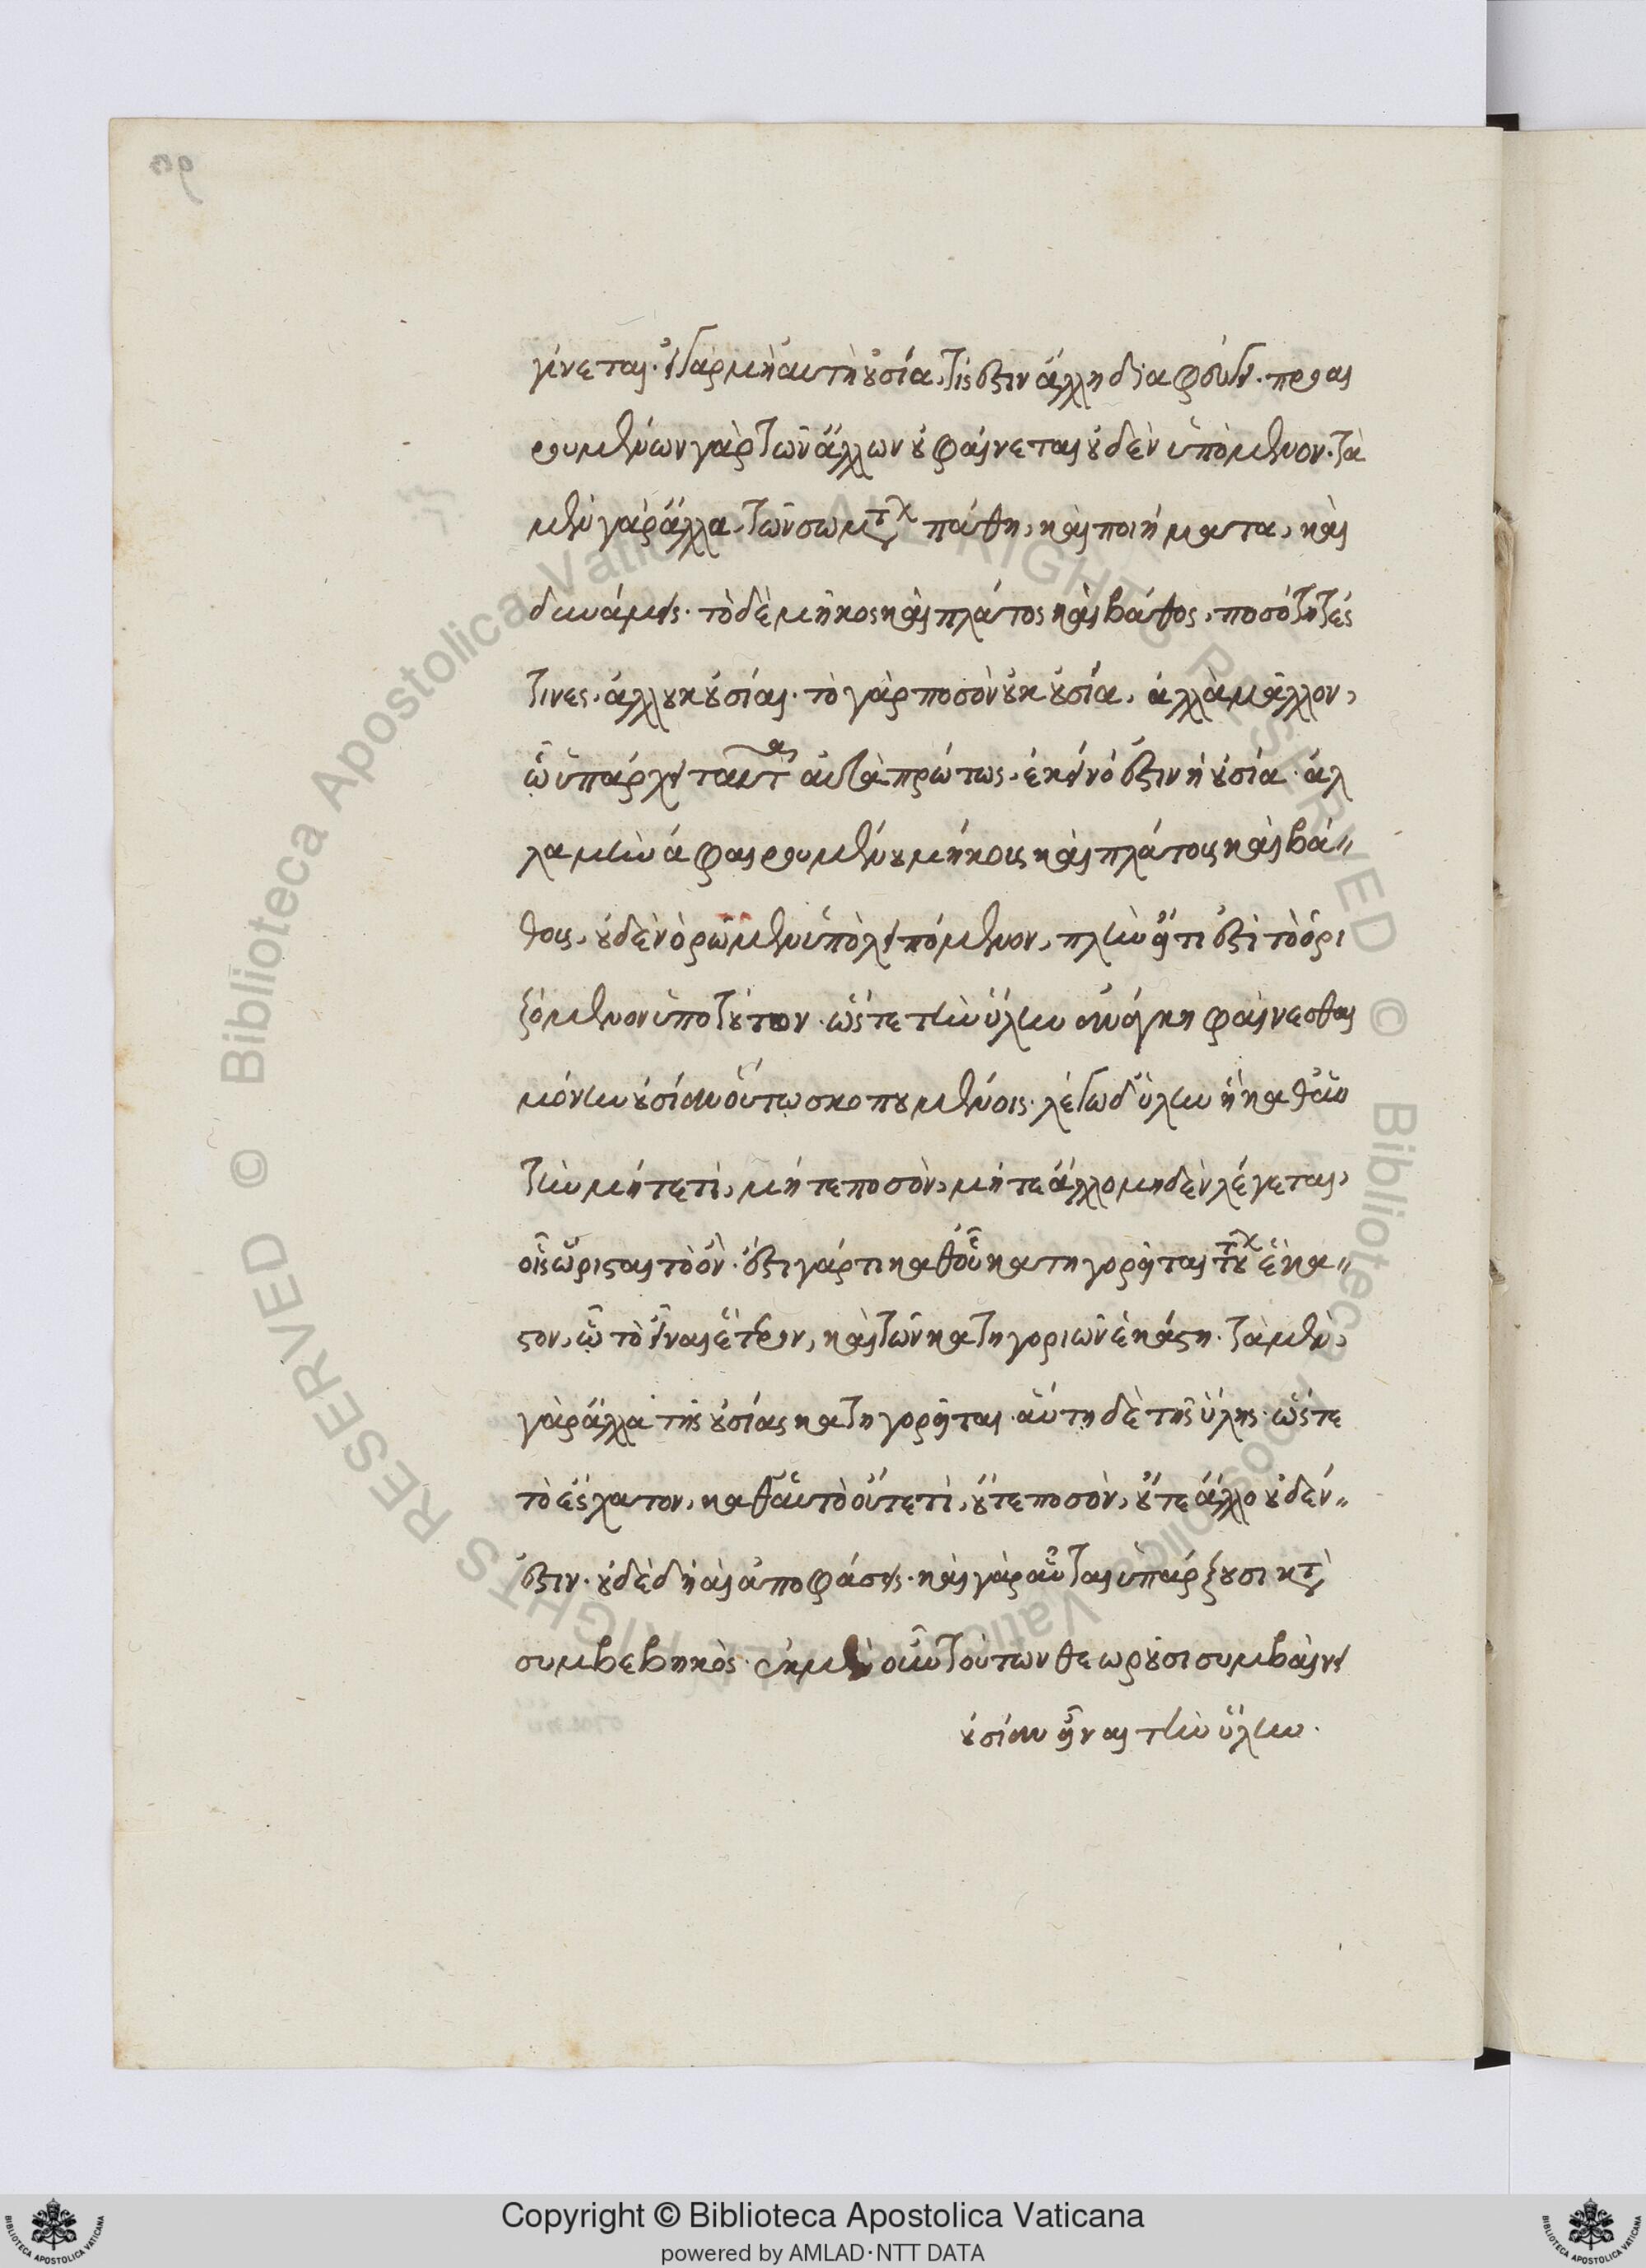 γίνεται. εἰ γὰρ μὴ αὐτὴ οὐσία, τίς ἐστιν ἄλλη διαφεύγει. περιαι
ρουμένων γὰρ τῶν ἄλλων οὐ φαίνεται οὐδὲν ὑπομένον. τὰ
μὲν γὰρ ἄλλα, τῶν σωμάτων πάθη, καὶ ποιήματα, καὶ
δυνάμεις. τὸ δὲ μῆκος καὶ πλάτος καὶ βάθος, ποσότητές
τινες, ἀλλ' οὐκ οὐσίαι. τὸ γὰρ ποσὸν οὐκ οὐσία, ἀλλὰ μᾶλλον,
ᾧ ὑπάρχει ταῦτα αὐτὰ πρώτως, ἐκεῖνό ἐστιν ἡ οὐσία. ἀλ
λὰ μὴν ἀφαιρουμένου μήκους καὶ πλάτους καὶ βά〃
θους, οὐδὲν ὁρῶμεν ὑπολειπόμενον, πλὴν εἴ τι ἐστὶ τὸ ὁρι
ζόμενον ὑπὸ τούτων. ὥστε τὴν ὕλην ἀνάγκη φαίνεσθαι
μόνην οὐσίαν οὕτω σκοπουμένοις. λέγω δ' ὕλην ἣ καθ' αὑ
τὴν μήτε τὶ, μήτε ποσὸν, μήτε ἄλλο μηδὲν λέγεται,
οἷς ὥρισται τὸ ὄν. ἔστι γάρ τι καθ' οὗ κατηγορεῖται τούτων ἕκα〃
στον, ᾧ τὸ εἶναι ἕτερον, καὶ τῶν κατηγοριῶν ἑκάστῃ. τὰ μὲν,
γὰρ ἄλλα τῆς οὐσίας κατηγορεῖται. αὕτη δὲ τῆς ὕλης. ὥστε
τὸ ἔσχατον, καθ' αὑτὸ οὔτε τὶ, οὔτε ποσὸν, οὔτε ἄλλο οὐδέν〃
ἐστιν. οὐδὲ δὴ αἱ ἀποφάσεις. καὶ γὰρ αὗται ὑπάρξουσι κατὰ
συμβεβηκός. ἐκ μὲν οὖν τούτων θεωροῦσι συμβαίνει
οὐσίαν εἶναι τὴν ὕλην.
Copyright © Biblioteca Apostolica Vaticana
powered by AMLAD·NTT DATA
© Biblioteca Apostolica Vaticana ALL RIGHTS RESERVED © Biblioteca Apostolica Vaticana ALL RIGHTS RESERVED
BIBLIOTECA APOSTOLICA VATICANA
BIBLIOTECA APOSTOLICA VATICANA